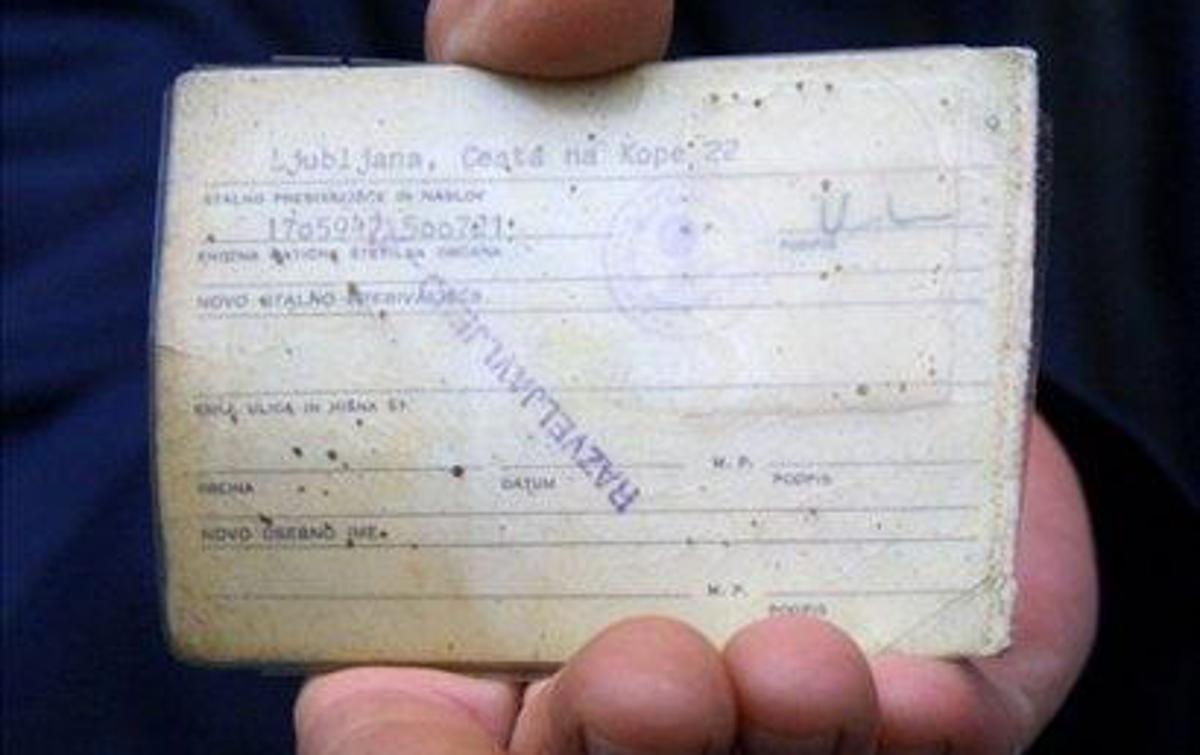 Ljubljana, Cesta na Kope 22
STALNO PREBIVALIŠČE IN NASLOV
PODPIS
ENOTNA MATIČNA ŠTEVILKA OBČANA
NOVO STALNO PREBIVALIŠČE
RAZVELJAVLJENO
KRAJ, ULICA IN HIŠNA ŠT.
M. P.
OBČINA DATUM PODPIS
NOVO OSEBNO IME
M. P.
PODPIS